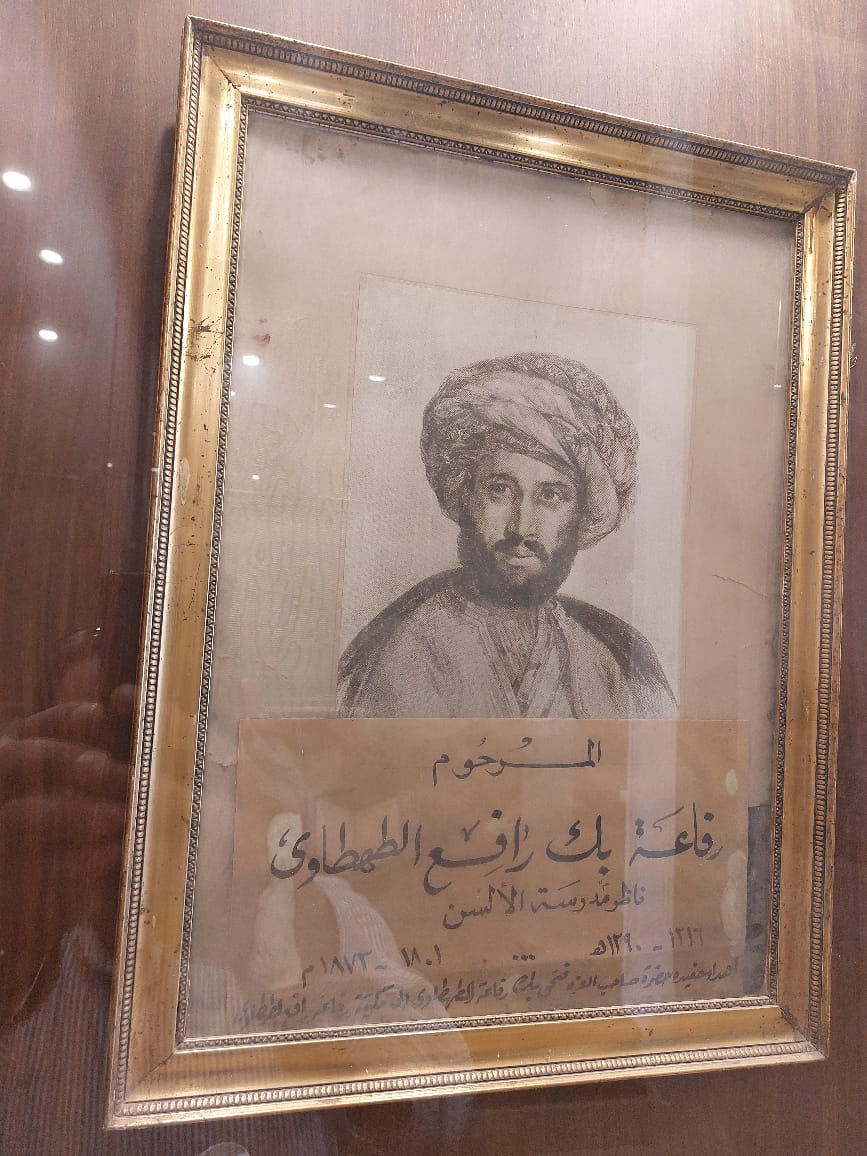 المــرحُوم
رفاعَة بك رَافِع الطهطاوى
ناظر مَدرسَة الألسُن
١٢١٦ - ١٢٩٠هـ ... ١٨٠١ - ١٨٧٣ م
اهداء حفيده حضرة صاحب العزه فتحى بك رفاعة الطهطاوى الى مكتبة رفاعة رافع الطهطاوى